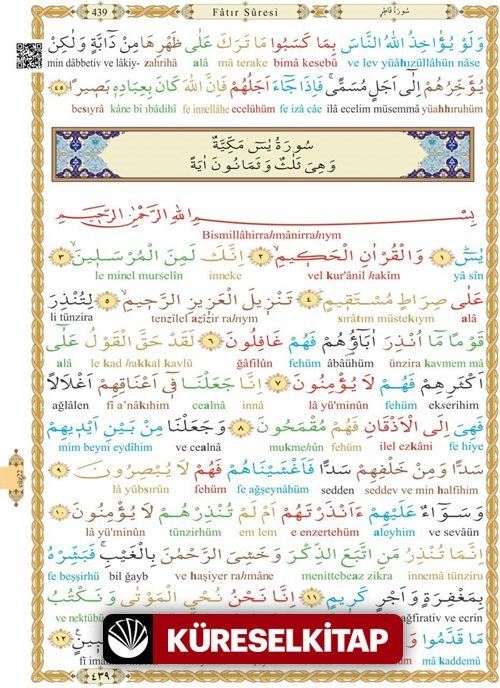 439 Fâtır Sûresi سُورَةُ فَاطِرٍ
وَلَوْ يُؤَاخِذُ اللّٰهُ النَّاسَ بِمَا كَسَبُوا مَا تَرَكَ عَلٰى ظَهْرِهَا مِنْ دَٓابَّةٍ وَلٰكِنْ
ve lev yüâhızüllâhün nâse bimâ kesebû mâ terake alâ zahrihâ min dâbbetiv ve lâkiy-
يُؤَخِّرُهُمْ اِلٰٓى اَجَلٍ مُسَمًّىۚ فَاِذَا جَٓاءَ اَجَلُهُمْ فَاِنَّ اللّٰهَ كَانَ بِعِبَادِهٖ بَصٖيرًا ﴿٤٥﴾
yüahhıruhüm ilâ ecelim müsemmâ fe izâ câe ecelühüm fe innellâhe kâne bi ıbâdihî besıyrâ
سُورَةُ يٰسٓ مَكِّيَّةٌ
وَهِيَ ثَلٰثٌ وَثَمَانُونَ اٰيَةً
بِسْمِ اللّٰهِ الرَّحْمٰنِ الرَّحٖيمِ
Bismillâhirrahmânirrahıym
يٰسٓ ﴿١﴾ وَالْقُرْاٰنِ الْحَكٖيمِ ﴿٢﴾ اِنَّكَ لَمِنَ الْمُرْسَلٖينَ ﴿٣﴾
yâ sîn vel kur'ânil hakîm inneke le minel murselîn
عَلٰى صِرَاطٍ مُسْتَقٖيمٍ ﴿٤﴾ تَنْزٖيلَ الْعَزٖيزِ الرَّحٖيمِ ﴿٥﴾ لِتُنْذِرَ
alâ sırâtım müstekıym tenzîlel azîzir rahıym li tünzira
قَوْمًا مَٓا اُنْذِرَ اٰبَٓاؤُهُمْ فَهُمْ غَافِلُونَ ﴿٦﴾ لَقَدْ حَقَّ الْقَوْلُ عَلٰٓى
kavmem mâ ünzira âbâühüm fehüm ğâfilûn le kad hakkal kavlü alâ
اَكْثَرِهِمْ فَهُمْ لَا يُؤْمِنُونَ ﴿٧﴾ اِنَّا جَعَلْنَا فٖٓى اَعْنَاقِهِمْ اَغْلَالًا
ekserihim fehüm lâ yü'minûn innâ cealnâ fî a'nâkıhim ağlâlen
فَهِيَ اِلَى الْاَذْقَانِ فَهُمْ مُقْمَحُونَ ﴿٨﴾ وَجَعَلْنَا مِنْ بَيْنِ اَيْدٖيهِمْ
fe hiye ilel ezkâni fehüm mukmehûn ve cealnâ mim beyni eydîhim
سَدًّا وَمِنْ خَلْفِهِمْ سَدًّا فَاَغْشَيْنَاهُمْ فَهُمْ لَا يُبْصِرُونَ ﴿٩﴾
seddev ve min halfihim sedden fe ağşeynâhüm fehüm lâ yübsırûn
وَسَوَٓاءٌ عَلَيْهِمْ ءَاَنْذَرْتَهُمْ اَمْ لَمْ تُنْذِرْهُمْ لَا يُؤْمِنُونَ ﴿١٠﴾
ve sevâün aleyhim e enzertehüm em lem tünzirhüm lâ yü'minûn
اِنَّمَا تُنْذِرُ مَنِ اتَّبَعَ الذِّكْرَ وَخَشِىَ الرَّحْمٰنَ بِالْغَيْبِۚ فَبَشِّرْهُ
innemâ tünziru menittebeaz zikra ve haşiyer rahmâne bil ğayb fe beşşirhü
بِمَغْفِرَةٍ وَاَجْرٍ كَرٖيمٍ ﴿١١﴾ اِنَّا نَحْنُ نُحْيِ الْمَوْتٰى وَنَكْتُبُ
ağfirativ ve ecrin ve nektübü
مَا قَدَّمُوا
mâ kaddemû
KÜRESELKİTAP
cüz 22
٤٣٩